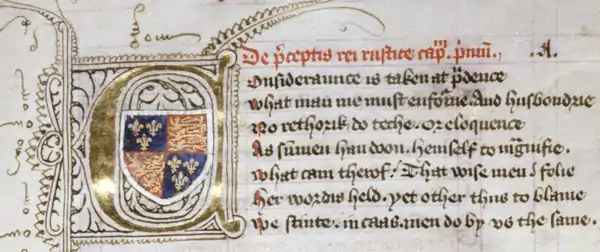 De p̄ceptis rei rustice cap̄m p̄imū. .A.
Consideraunce is taken at p̄dence
what man̄ me must enfor̄me. And husbondrie
No rethorik do teche. Or eloquence
As sū men han doon. hemself to mḡnifie.
what cam therof? That wise men ī folie
Her wordis held. yet other thus to blame
We stinte. in caas. men do by vs the same.